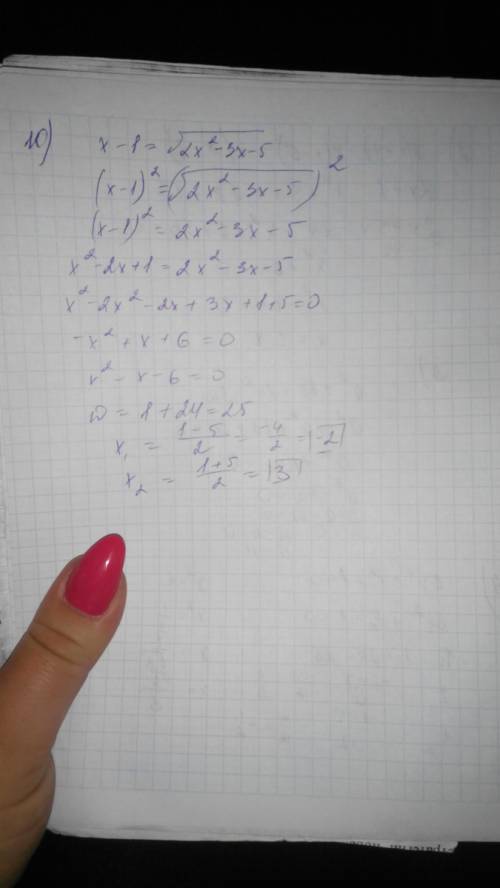 10) x - 1 = √2x² - 3x - 5
(x-1)² = (√2x² - 3x - 5)²
(x-1)² = 2x² - 3x - 5
x² - 2x + 1 = 2x² - 3x - 5
x² - 2x² - 2x + 3x + 1 + 5 = 0
-x² + x + 6 = 0
x² - x - 6 = 0
D = 1 + 24 = 25
x₁ = (1-5)/2 = -4/2 = |-2|
x₂ = (1+5)/2 = |3|